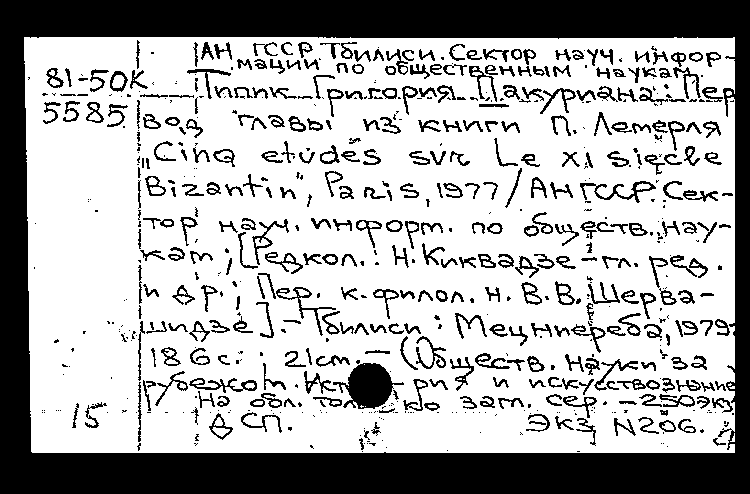 АН ГССР Тбилиси. Сектор науч. инфор-
мации по общественным наукам.
81-50К
Типик Григория Пакуриана: Пер
5585
вод главы из книги П. Лемерля
„Cinq etudes sur Le XI siecle
Bizantin", Paris, 1977 / АН ГССР. Сек-
тор науч. информ. по обществ. нау-
кам; [Редкол.: Н. Киквадзе - гл. ред.
и др.; Пер. к. филол. н. В.В. Шерва-
шидзе]. - Тбилиси: Мецниереба, 1979
186 с.; 21 cm. - (Обществ. науки за
рубежом. Ист рия и искусствознание
На обл. только заг. сер. - 250 экз
15
ДСП. Экз N206.